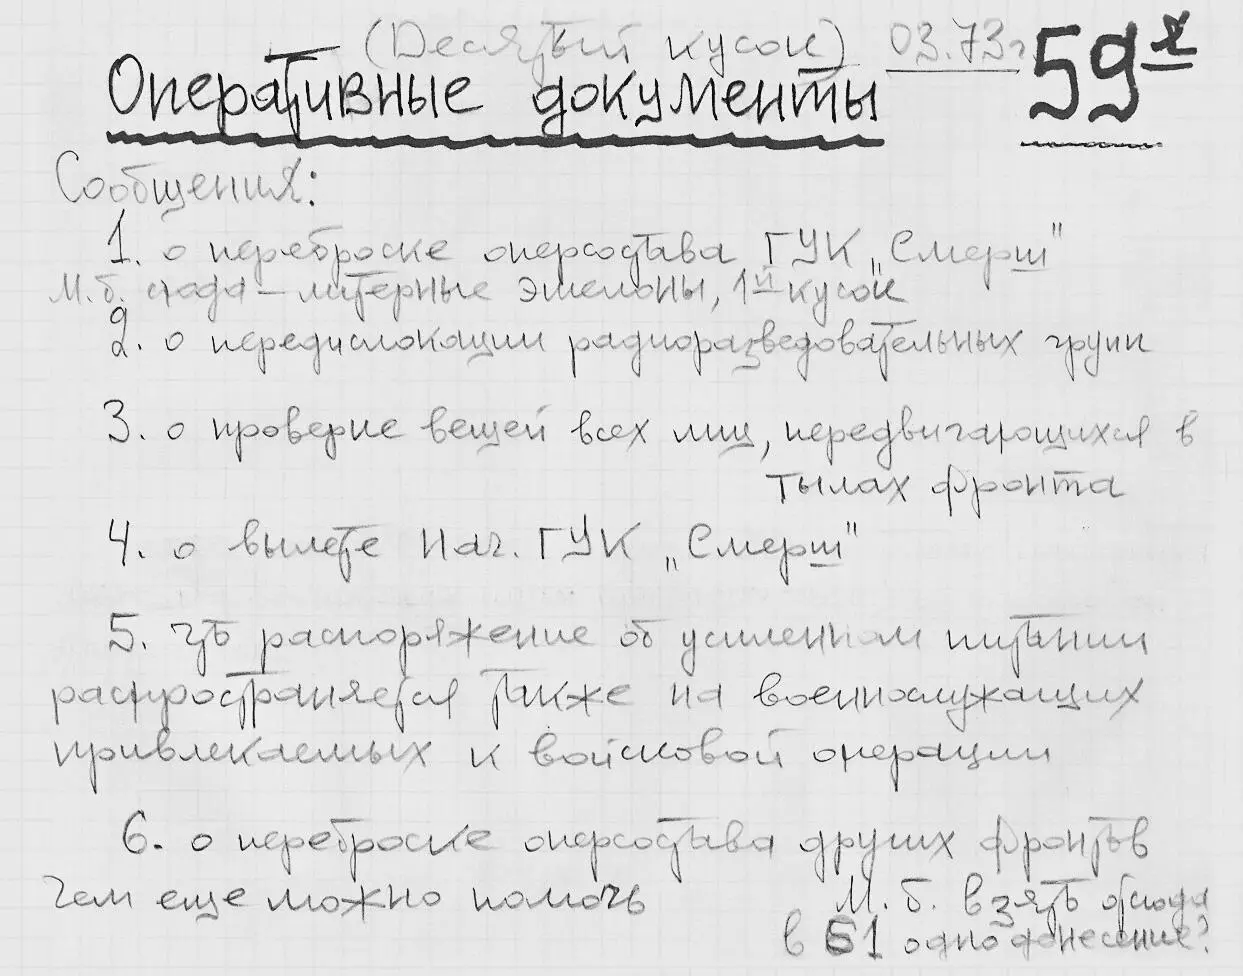 (Десятый кусок) 03.73г
59е
Оперативные документы
Сообщения:
1. о переброске оперсостава ГУК „Смерш"
М.б. сюда – литерные эшелоны, 1й кусок
2. о передислокации радиоразведовательных групп
3. о проверке вещей всех лиц, передвигающихся в
тылах фронта
4. о вылете Нач. ГУК „Смерш"
5. что распоряжение об усиленном питании
распространяется также на военнослужащих
привлекаемых к войсковой операции
6. о переброске оперсостава других фронтов
чем еще можно помочь
М.б. взять отсюда
в 61 одно донесение?